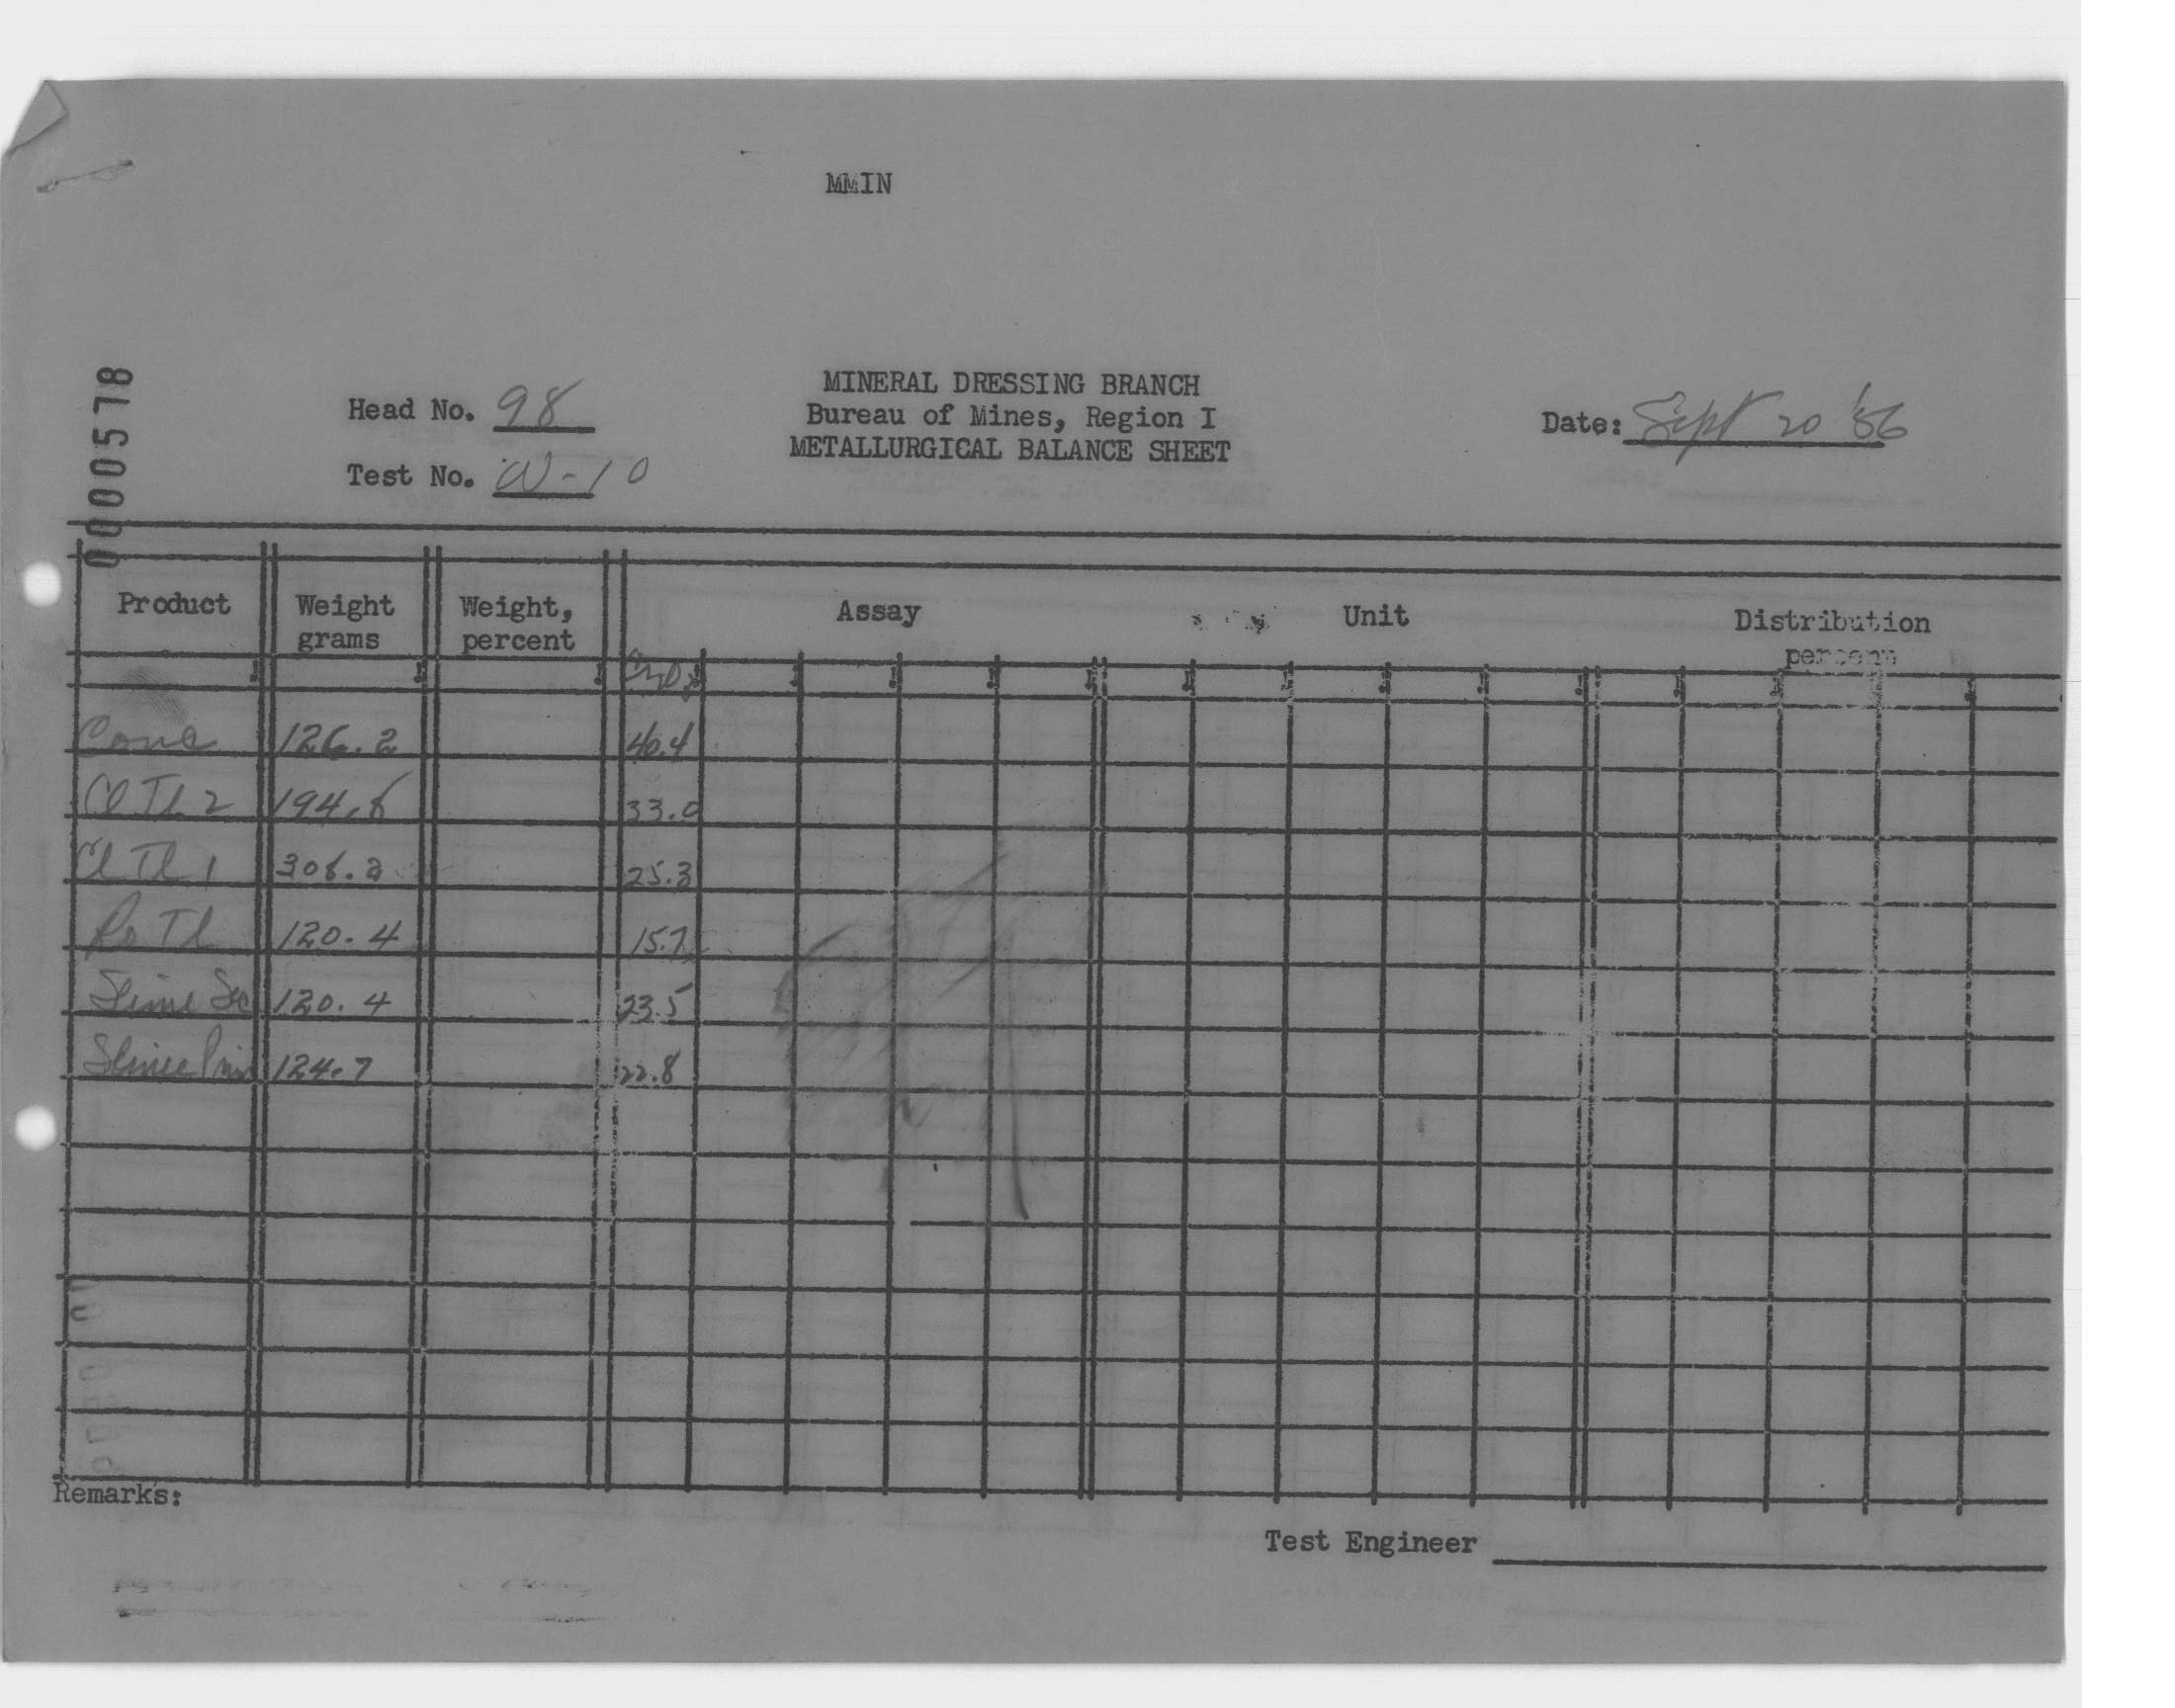 MMIN
0000578
MINERAL DRESSING BRANCH
Head No. 98
Bureau of Mines, Region I
Date: Sept 20 '56
METALLURGICAL BALANCE SHEET
Test No. W-10
Product Weight grams Weight, percent Assay Unit Distribution percent
Conc 126.2 40.4
Cl Tl 2 194.8 33.0
Cl Tl 1 306.2 25.3
Ro Tl 120.4 15.7
Slime Sec 120.4 23.5
Slime Prim 124.7 22.8
Remarks:
Test Engineer